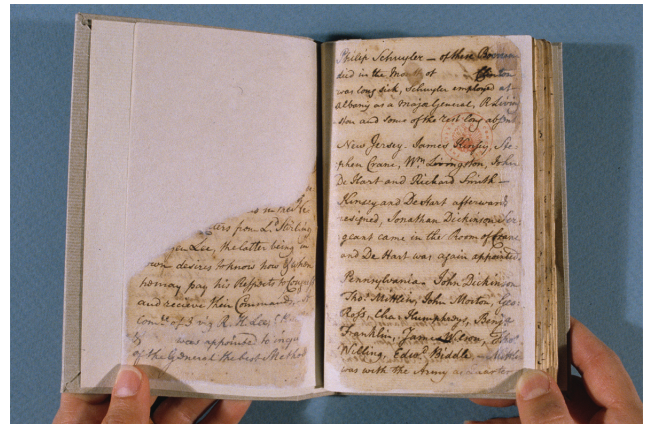 in
ters from L. Stirling
Lee, the latter being in
own desires to know how & when
he may pay his Respects to Congress
and recieve their Commands, A
Com.ee of 3 viz R. H. Lee,
was appointed to inqu
of the General the best Method
Philip Schuyler — of these Boerum
died in the Month of Clinton
was long sick, Schuyler employed at
Albany as a Major General, R Livin
ston and some of the rest long absent
New Jersey. James Kinsey, Ste
phen Crane, Wm Livingston, John
De Hart and Richard Smith —
Kinsey and De Hart afterwards
resigned, Jonathan Dickinson Ser
geant came in the Room of Crane
and De Hart was again appointed.
Pennsylvania — John Dickinson
Tho.s Mifflin, John Morton, Geo:
Ross, Cha.s Humphreys, Benj.n
Franklin, James Wilson, Tho.s
Willing, Edw.d Biddle — Mifflin
was with the Army as Quarter